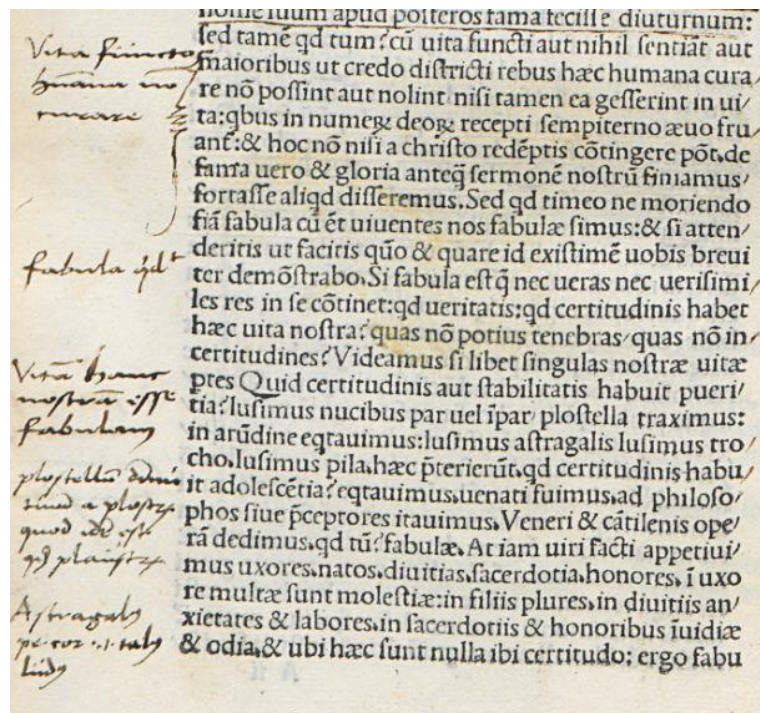 nome tuum apud posteros fama fecisse diuturnum:
sed tamē qd tum? cū uita functi aut nihil sentiāt aut
maioribus ut credo districti rebus hæc humana cura/
re nō possint aut nolint nisi tamen ea gesserint in ui/
ta: qbus in numeꝝ deoꝝ recepti sempiterno æuo fru/
ant̄: & hoc nō nisi a christo redēptis cōtingere pōt. de
fama uero & gloria anteq̄ sermonē nostrū finiamus/
fortasse aliqd disseremus. Sed qd timeo ne moriendo
fiā fabula cū ēt uiuentes nos fabulæ simus: & si atten/
deritis ut facitis quō & quare id existimē uobis breui
ter demōstrabo. Si fabula est q̄ nec ueras nec uerisimi/
les res in se cōtinet: qd ueritatis: qd certitudinis habet
hæc uita nostra? quas nō potius tenebras/ quas nō in/
certitudines? Videamus si libet singulas nostræ uitæ
ptes Quid certitudinis aut stabilitatis habuit pueri/
tia? lusimus nucibus par uel īpar/ plostella traximus:
in arūdine eqtauimus: lusimus astragalis lusimus tro/
cho. lusimus pila. hæc p̄terierūt. qd certitudinis habu/
it adolescētia? eqtauimus. uenati fuimus. ad philoso/
phos siue p̄ceptores itauimus. Veneri & cātilenis ope/
rā dedimus. qd tū? fabulæ. At iam uiri facti appetiui/
mus uxores. natos. diuitias. sacerdotia. honores. ī uxo
re multæ sunt molestiæ: in filiis plures. in diuitiis an/
xietates & labores. in sacerdotiis & honoribus īuidiæ
& odia. & ubi hæc sunt nulla ibi certitudo: ergo fabu
Vita functos
humana nō
curare
fabula qd
Vitā hanc
nostrā esse
fabulam
plostellū
a plostr
quod idē est
Astragalus
talus
ludus